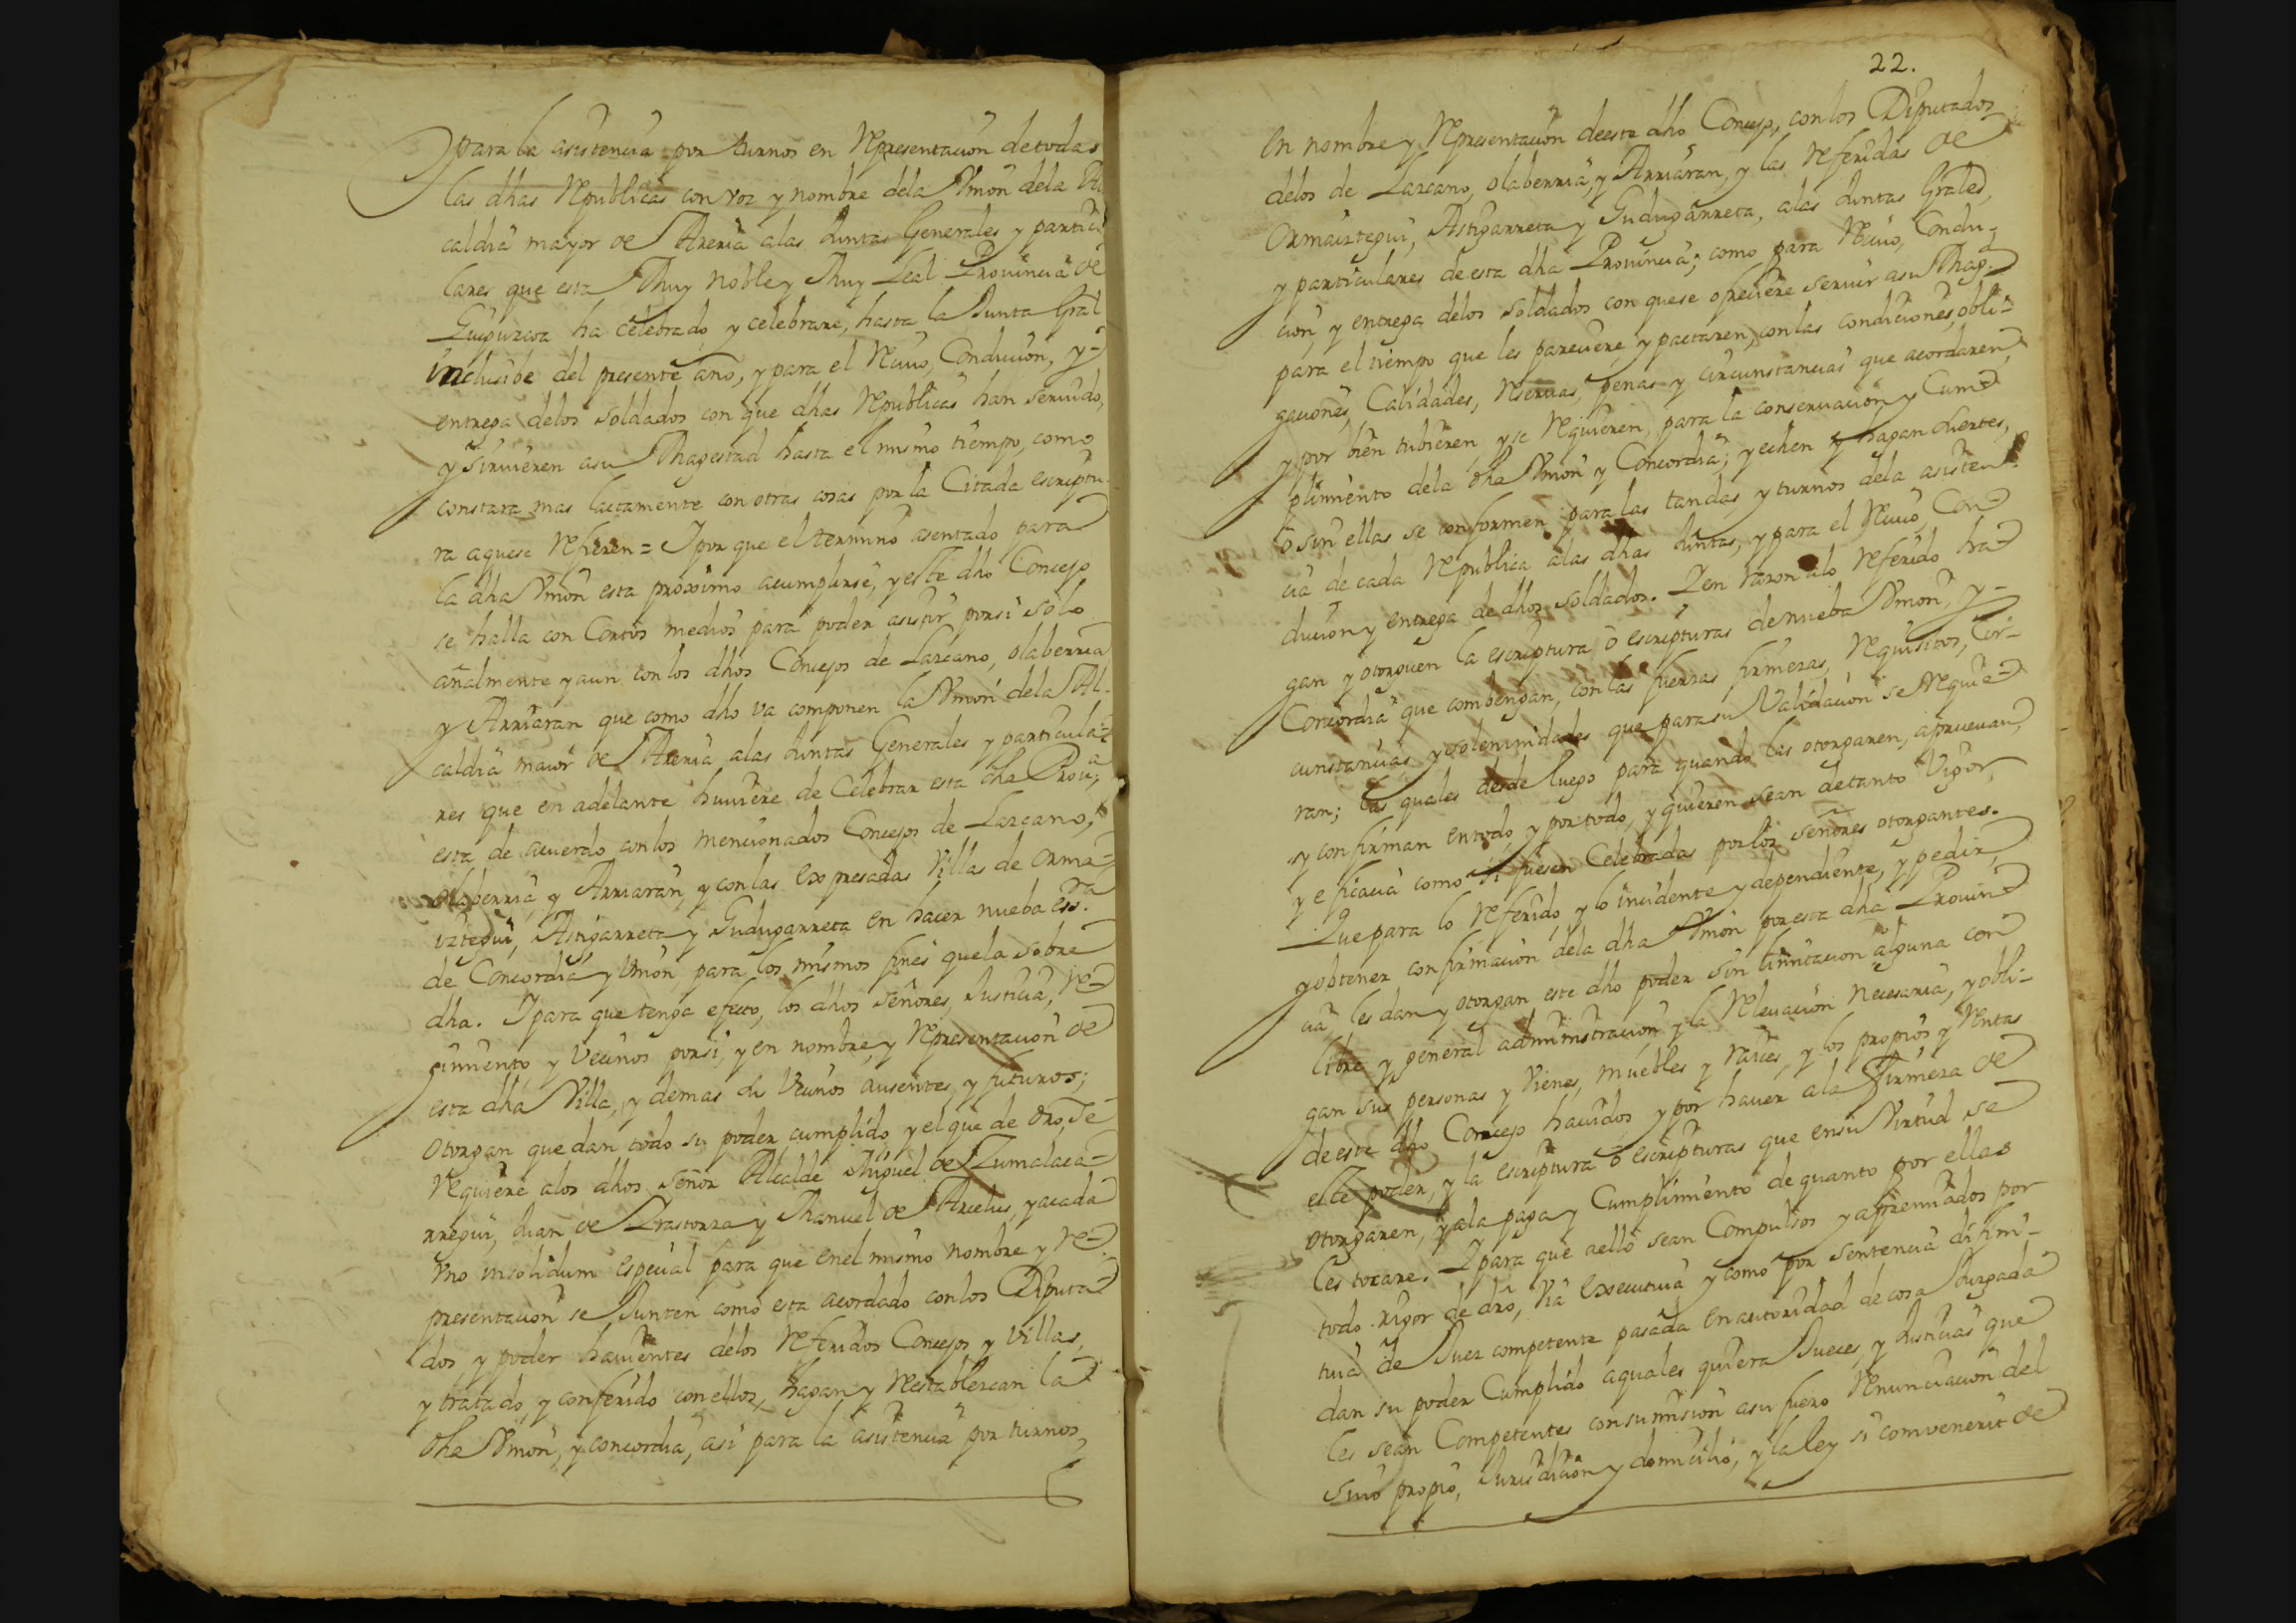 para la asistencia por turnos en Representacion de todas
las dhas Republicas con voz y nombre dela Vnion dela Al
caldia mayor de Areria alas Juntas Generales y particu
lares que esta Muy Noble y Muy Leal Prouincia de
Guipuzcoa ha celebrado y celebrare, hasta la Junta Gral
inclusibe del presente año, y para el Reciuo, Conducion, y
entrega delos soldados con que dhas Republicas han seruido,
y siruieren asu Magestad hasta el mismo tiempo, como
constara mas lactamente con otras cosas por la Citada escriptu
ra aquese refieren = Y por que el termino asentado para
la dha Vnion esta proximo acumplirse, y este dho Concejo
se halla con Cortos medios para poder asistir porsi solo
añalmente y aun con los dhos Concejos de Lazcano, olaberria
y Arriaran que como dho va componen la Vnion dela Al-
caldia maior de Areria alas Juntas Generales y particula-
res que en adelante huuiere de Celebrar esta dha Prou.ª,
esta de acuerdo con los mencionados Concejos de Lazcano,
olaberria y Arriaran, y con las expresadas Villas de orma-
iztegui, Astigarreta y Gudugarreta en hacer nueba ess.ra
de Concordia y Vnion, para los mismos fines quela sobre
dha. Y para que tenga efecto, los dhos señores, Justicia, Re-
gimiento y Vecinos porsi, y en nombre, y Representacion de
esta dha Villa, y demas sus Vecinos ausentes, y futuros;
otorgan que dan todo su poder cumplido y el que de dro, se
requiere alos dhos señor Alcalde Miguel de Zumalaca-
rregui, Juan de Lrastorza y Manuel de Arcelus, y acada
vno insolidum especial para que enel mismo nombre y re-
presentacion se Junten como esta acordado con los Diputa-
dos y poder hauientes delos referidos Concejos y Villas,
y tratado, y conferido con ellos, hagan y Restablezcan la
dha Vnion, y concordia, asi para la asistencia por turnos,
22.
En nombre y Representacion deeste dho Concejo, con los Diputados
delos de Lazcano, olaberria, y Arriaran, y las referidas de
Ormaiztegui, Astigarreta y Gudugarreta, alas Juntas Grales,
y particulares de esta dha Prouincia; como para Reciuo, Condu-
cion, y entrega delos soldados con quese ofreciere seruir asu Mag.d
para el tiempo que les pareciere y pactaren, con las condiciones, obli-
gaciones, Calidades, reseruas, penas y circunstancias que acordaren,
y por bien tubieren, y se requieren, para la conseruacion y Cum-
plimiento dela dha Vnion y Concordia; y echen y hagan suertes,
o sin ellas se conformen para las tandas y turnos dela asisten-
cia de cada republica alas dhas Juntas, y para el Reciuo, Con
ducion y entrega de dhos soldados. Y en razon alo referido ha-
gan y otorguen la escriptura o escripturas denueba Vnion, y
Concordia que combengan, con las fuerzas firmezas, requisitos, Cir-
cunstancias y solemnidades que para su Validacion se requie-
ran; las quales desde luego para quando las otorgaren, aprueuan,
y confirman entodo, y portodo, y quieren sean detanto Vigor,
y eficacia como si fuesen Celebradas porlos señores otorgantes.
Que para lo referido, y lo incidente y dependiente, y pedir,
y obtener confirmacion dela dha Vnion por esta dha Prouin
cia, les dan y otorgan este dho poder sin limitacion alguna con
libre y general administracion y la Releuacion necesaria, y obli-
gan sus personas y Vienes, muebles y raices, y los propios y rentas
deeste dho Concejo hauidos y por hauer ala Firmeza de
este poder, y la escriptura o escripturas que ensu Virtud se
otorgaren, y ala paga y Cumplimiento de quanto por ellas
les tocare. Y para que aello sean Compulsos y apremiados por
todo rigor de dro, Via executiua y como por sentencia difini-
tiua de Juez competente pasada en autoridad de cosa Juzgada
dan su poder Cumplido aquales quiera Jueces, y Justicias que
les sean Competentes con sumision asu fuero renunciacion del
Suio propio, Jurisdicion y domicilio, y la ley si convenerit de